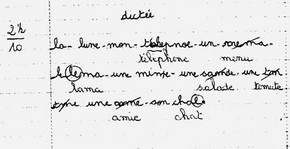 dictée
2½
10
la - lune - mon - télépnoe - un - 
téléphone menu
le lema - un mine - une samde - un tm
lama salade tomate
une ome - son chal
amie chat